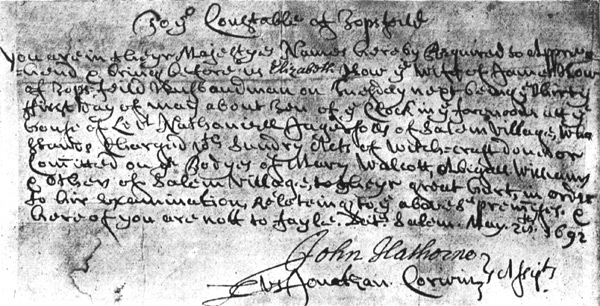 To ye Constable of Topsfeild
You are in theyr Majestyes Names hereby Required to Appre=
hend & bring before us Elizabeth How ye wife of James How
of Topsfeild Husbandman on Tuesday next being ye thirty
first day of may about Ten of ye Clock in ye forenoone att ye
house of Levt Nathaniell Ingersolls of Salem Village, Who
stands Charged with Sundry Acts of Witchcraft donne or
Comitted on ye Bodyes of Mary Walcott, Abigall Williams
& others of Salem Village, to theyr great hurt, in order
to hir examination, Relateing to ye abovesd premises, &
hereof you are nott to fayle. Datd Salem. May. 1692
John Hathorne
Jonathan. Corwin Assists